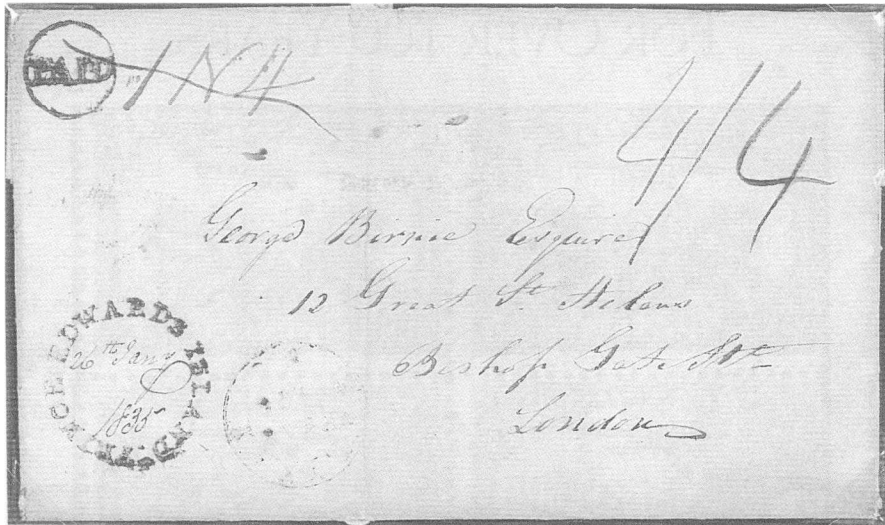 PAID 1 N 4
4/4
George Birnie Esquire
12 Great St. Helens
Bishop Gate Stt
London
PRINCE EDWARDS ISLAND
26th Jany
1835